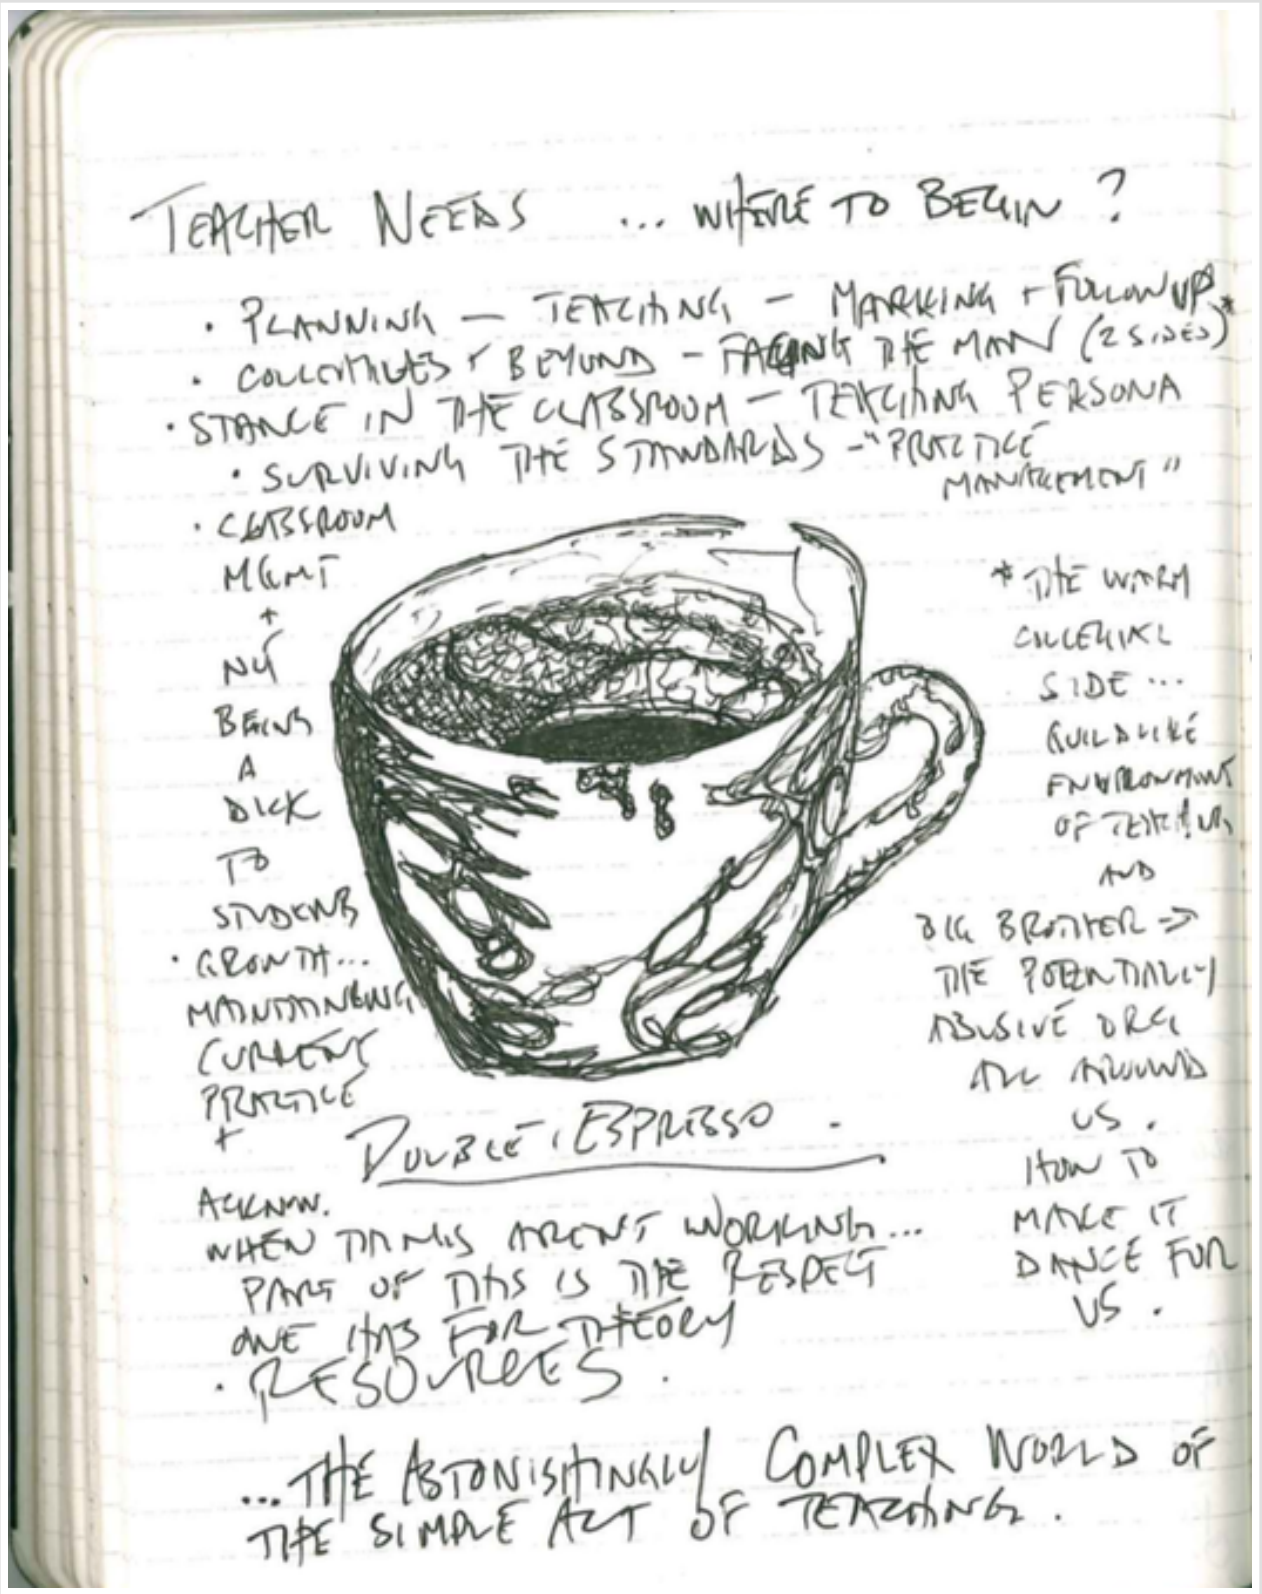 TEACHER NEEDS ... WHERE TO BEGIN ?
· PLANNING — TEACHING — MARKING + FOLLOWUP
· COLLEAGUES + BEYOND — FACING THE MAN (2 SIDES)*
· STANCE IN THE CLASSROOM — TEACHING PERSONA
· SURVIVING THE STANDARDS — "PRACTICE
MANAGEMENT"
· CLASSROOM
MGMT
+
BEING
A
DICK
TO
STUDENTS
· GROWTH...
MAINTAINING
CURRENT
PRACTICE
+
ACKNOW.
WHEN THINGS ARENT WORKING...
PART OF THIS IS THE RESPECT
ONE HAS FOR THEORY
· RESOURCES.
* THE WARM
COLLEGIAL
SIDE ...
GUILDLIKE
ENVIRONMENT
OF TEACHING
AND
BIG BROTHER →
THE POTENTIALLY
ABUSIVE ORG
ALL AROUND
US .
HOW TO
MAKE IT
DANCE FOR
US .
DOUBLE ESPRESSO .
... THE ASTONISHINGLY COMPLEX WORLD OF
THE SIMPLE ACT OF TEACHING .